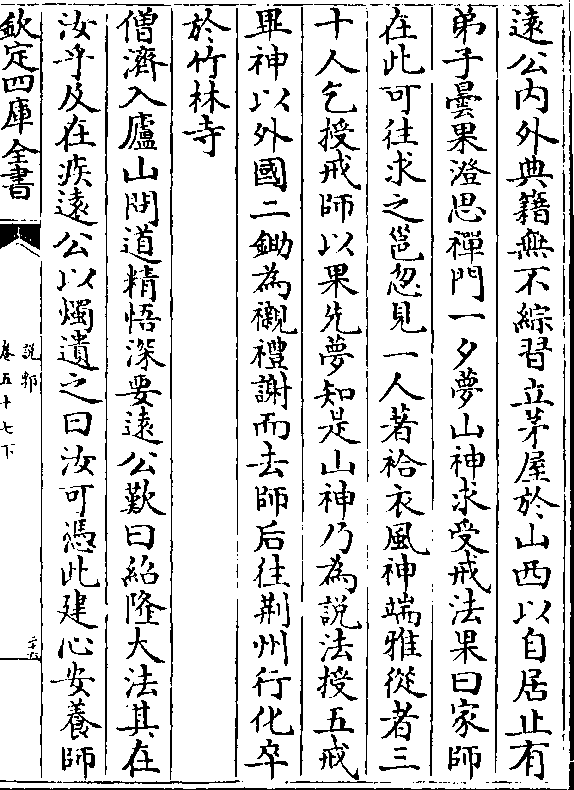 遠公内外典籍無不綜習立茅屋於山西以自居止有
弟子曇果澄思禪門一夕夢山神求受戒法果曰家師
在此可往求之邕忽見一人著袷衣風神端雅從者三
十人乞授戒師以果先夢知是山神乃為說法授五戒
畢神以外國二鋤為襯禮謝而去師后往荆州行化卒
於竹林寺
僧濟入廬山問道精悟深要遠公歎曰紹隆大法其在
汝乎及在疾遠公以燭遺之曰汝可憑此建心安養師
欽定四庫全書
說郛
卷五十七下